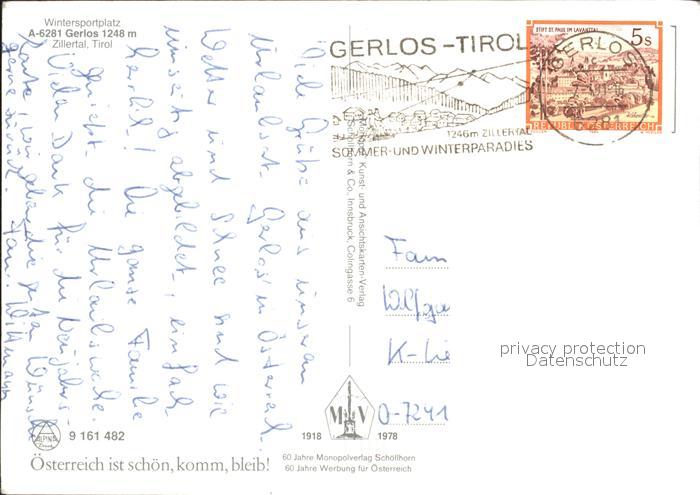 Wintersportplatz
A-6281 Gerlos 1248 m
Zillertal, Tirol
GERLOS-TIROL
1246m ZILLERTAL
SOMMER-UND WINTERPARADIES
STIFT ST. PAUL IM LAVANTTAL
5 S
REPUBLIK ÖSTERREICH
GERLOS
6281
Viele Grüße aus unserem
Urlaubsort Gerlos in Österreich.
Wetter und Schnee sind wie
umseitig abgebildet, einfach
herrlich! Die ganze Familie
genießt die Urlaubswoche.
Vielen Dank für die Neujahrs-
Karte, wir geben die guten Wünsche
gerne zurück. Fam. Wittmann
Kunst- und Ansichtskarten-Verlag
& Co., Innsbruck, Colingasse 6
Fam
Wolfga
K-Lie
O-7241
privacy protection
Datenschutz
ALPINE
9 161 482
1918 M V 1978
Österreich ist schön, komm, bleib!
60 Jahre Monopolverlag Schöllhorn
60 Jahre Werbung für Österreich